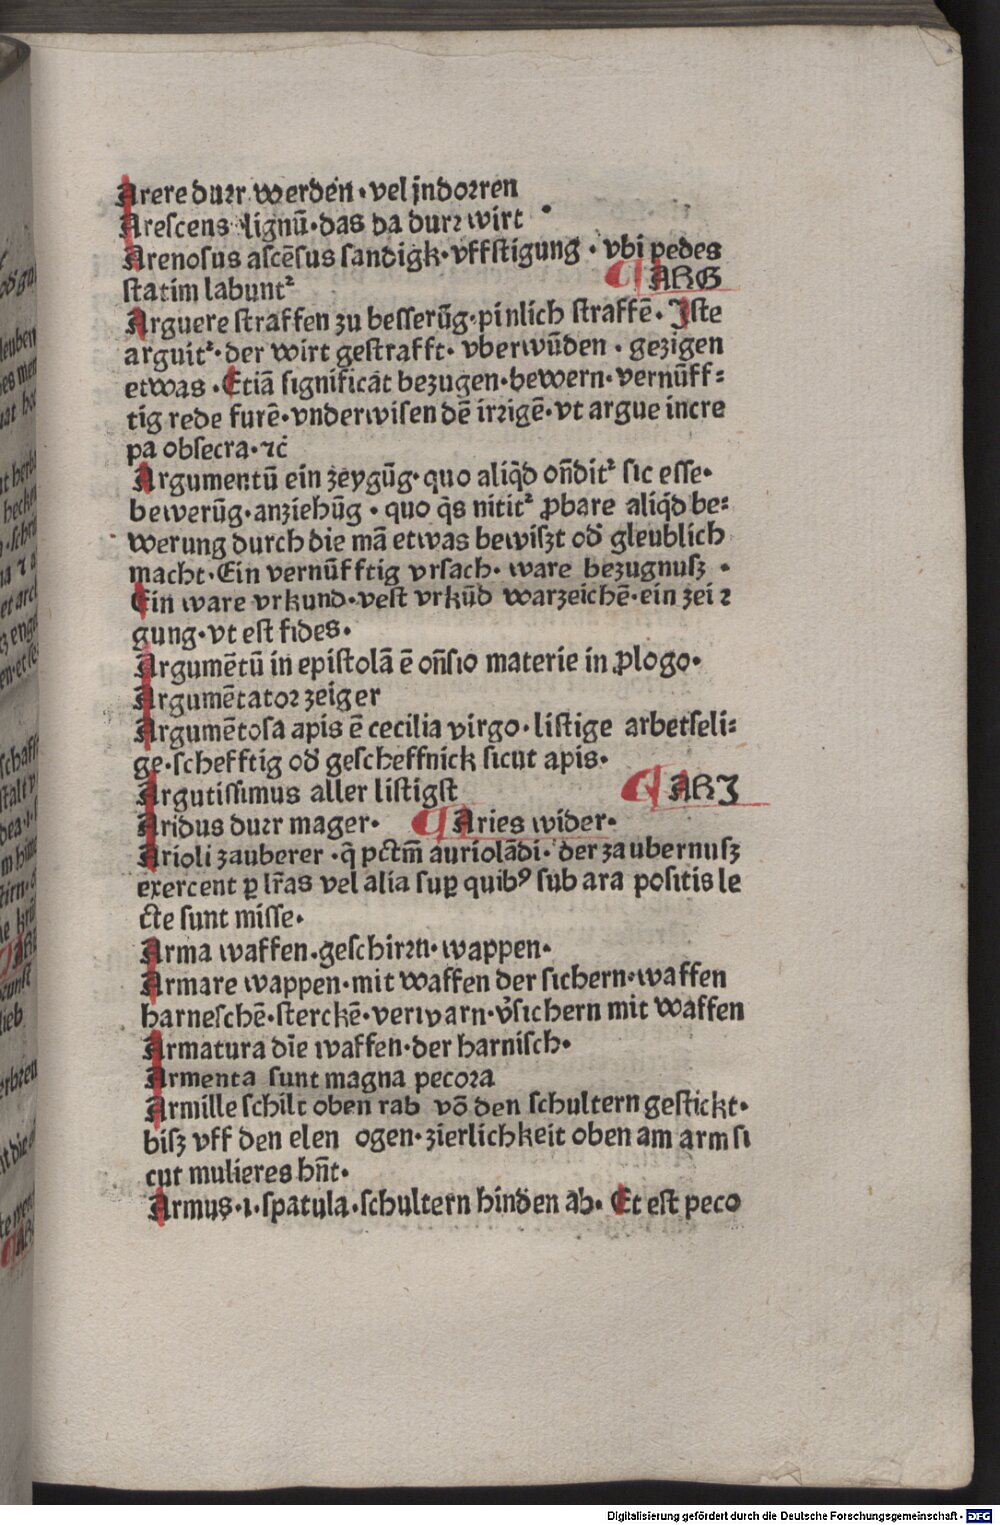 Arere durr werden·vel jndorren
Arescens lignū·das da durr wirt
Arenosus ascēsus sandigk·vffstigung·vbi pedes
¶ ARG
statim labuntꝛ
Arguere straffen zu besserūg·pinlich straffē·Iste
arguitꝛ·der wirt gestrafft·vberwūden·gezigen
etwas·Etiā significat bezugen·bewern·vernūff⸗
tig rede furē·vnderwisen dē irrigē·vt argue incre
pa obsecra·⁊ċ
Argumentū ein zeygūg·quo aliq̄d on̄ditꝛ sic esse·
bewerūg·anziehūg·quo q̄s nititꝛ ꝓbare aliq̄d be⸗
werung durch die mā etwas bewiszt od̕ gleublich
macht·Ein vernūfftig vrsach·ware bezugnusz·
Ein ware vrkund·vest vrkūd warzeichē·ein zei
gung·vt est fides·
Argumētū in epistolā ē on̄sio materie in ꝓlogo·
Argumētator zeiger
Argumētosa apis ē cecilia virgo·listige arbetseli⸗
ge·schefftig od̕ gescheffnick sicut apis·
Argutissimus aller listigst
¶ ARI
Aridus durr mager· ¶ Aries wider·
Arioli zauberer·q̄ pctm̄ auriolādi·der zaubernusz
exercent ꝑ lr̄as vel alia suꝑ quibꝰ sub ara positis le
cte sunt misse·
Arma waffen·geschirrn·wappen·
Armare wappen·mit waffen der sichern·waffen
harneschē·sterckē·verwarn·v̕sichern mit waffen
Armatura die waffen·der harnisch·
Armenta sunt magna pecora
Armille schilt oben rab vō den schultern gestickt·
bisz vff den elen ogen·zierlichkeit oben am arm si
cut mulieres hn̄t·
Armus·i·spatula·schultern hinden ab·Et est peco
Digitalisierung gefördert durch die Deutsche Forschungsgemeinschaft - DFG